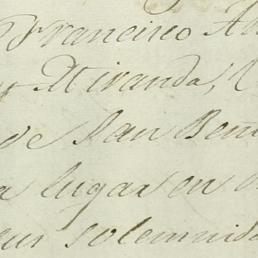 Francisco
Miranda,
de San
lugar en
solemnida